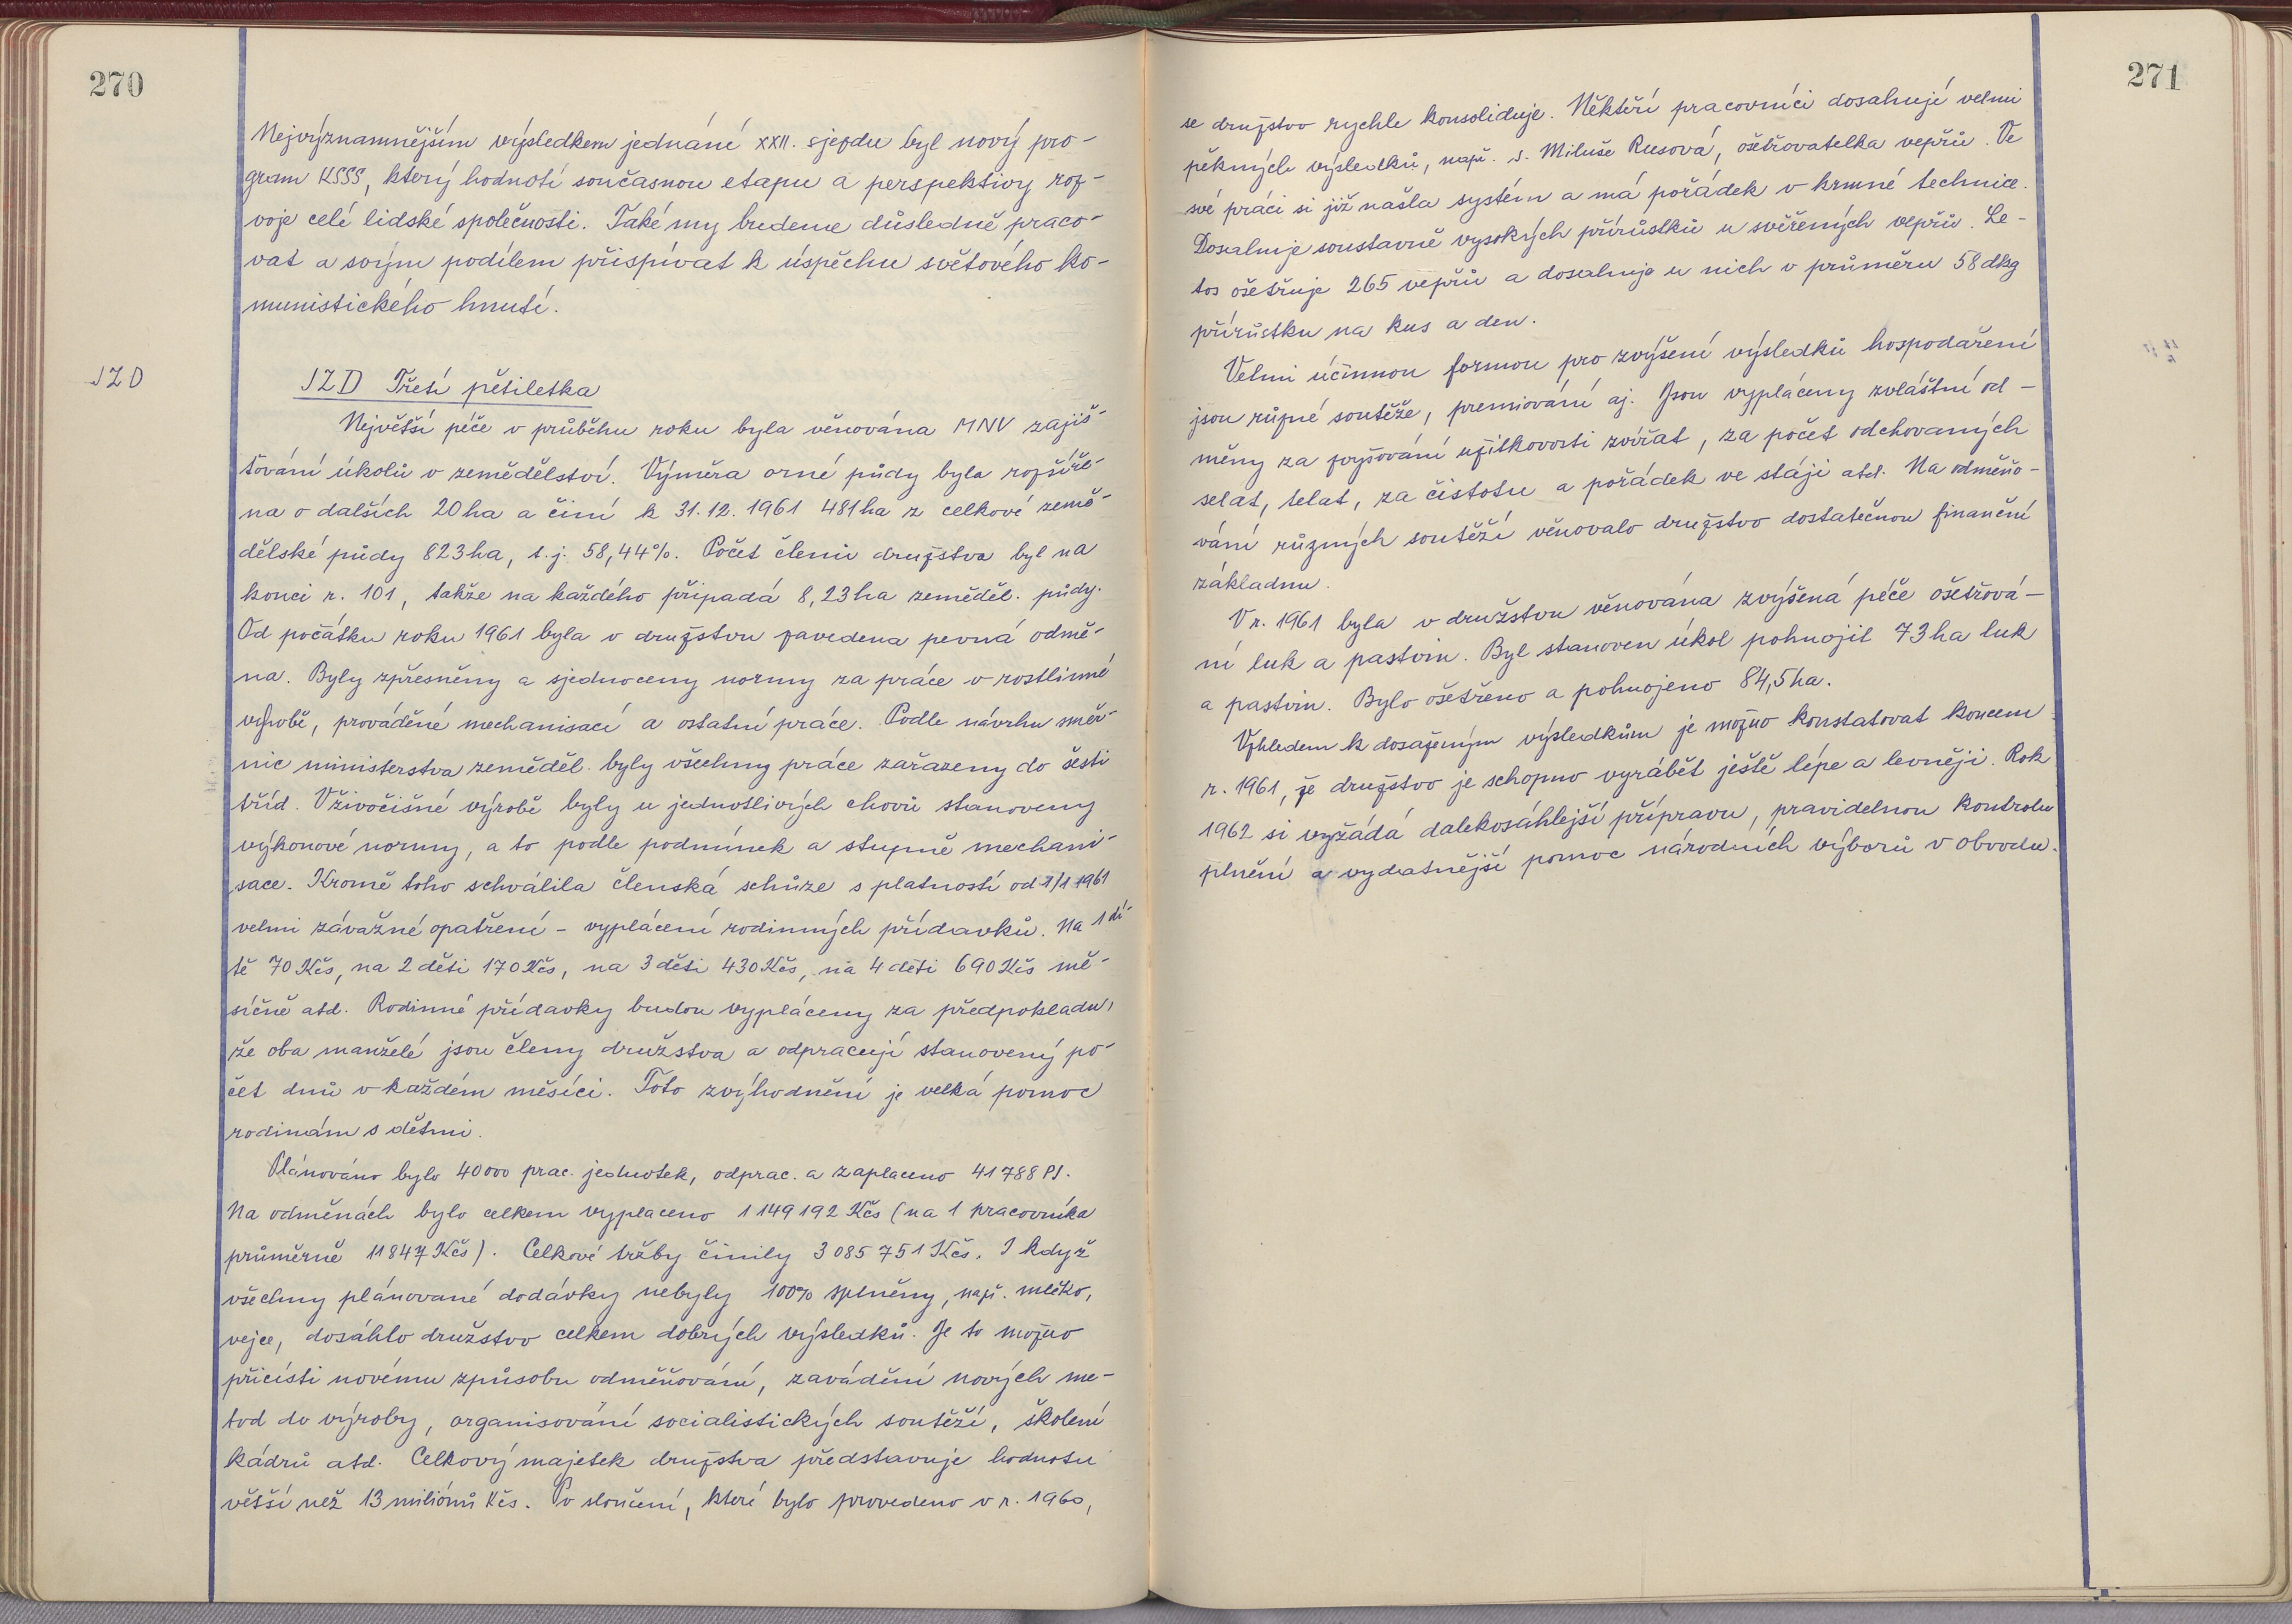 270
Nejvýznamnějším výsledkem jednání XXII. sjezdu byl nový pro-
gram KSSS, který hodnotí současnou etapu a perspektivy roz-
voje celé lidské společnosti. Také my budeme důsledně praco-
vat a svým podílem přispívat k úspěchu světového ko-
munistického hnutí.
JZD
JZD Třetí pětiletka
Největší péče v průběhu roku byla věnována MNV zajiš-
ťování úkolů v zemědělství. Výměra orné půdy byla rozšíře-
na o dalších 20 ha a činí k 31.12.1961 481 ha z celkové země-
dělské půdy 823 ha, t.j. 58,44%. Počet členů družstva byl na
konci r. 101, takže na každého připadá 8,23 ha zeměděl. půdy.
Od počátku roku 1961 byla v družstvu zavedena pevná odmě-
na. Byly zpřesněny a sjednoceny normy za práce v rostlinné
výrobě, prováděné mechanisací a ostatní práce. Podle návrhu směr-
nic ministerstva zeměděl. byly všechny práce zařazeny do šesti
tříd. V živočišné výrobě byly u jednotlivých chovů stanoveny
výkonové normy, a to podle podmínek a stupně mechani-
sace. Kromě toho schválila členská schůze s platností od 1/1 1961
velmi závažné opatření - vyplácení rodinných přídavků. Na 1 dí-
tě 70 Kčs, na 2 děti 170 Kčs, na 3 děti 430 Kčs, na 4 děti 690 Kčs mě-
síčně atd. Rodinné přídavky budou vypláceny za předpokladu,
že oba manželé jsou členy družstva a odpracují stanovený po-
čet dnů v každém měsíci. Toto zvýhodnění je velká pomoc
rodinám s dětmi.
Plánováno bylo 40000 prac. jednotek, odprac. a zaplaceno 41788 PJ.
Na odměnách bylo celkem vyplaceno 1 149 192 Kčs (na 1 pracovníka
průměrně 11847 Kčs). Celkové tržby činily 3 085 751 Kčs. I když
všechny plánované dodávky nebyly 100% splněny, např. mléko,
vejce, dosáhlo družstvo celkem dobrých výsledků. Je to možno
přičísti novému způsobu odměňování, zavádění nových me-
tod do výroby, organisování socialistických soutěží, školení
kádrů atd. Celkový majetek družstva představuje hodnotu
větší než 13 miliónů Kčs. Po sloučení, které bylo provedeno v r. 1960,
271
se družstvo rychle konsoliduje. Někteří pracovníci dosahují velmi
pěkných výsledků, např. s. Miluše Rusová, ošetřovatelka vepřů. Ve
své práci si již našla systém a má pořádek v krmné technice.
Dosahuje soustavně vysokých přírůstků u svěřených vepřů. Le-
tos ošetřuje 265 vepřů a dosahuje u nich v průměru 58 dkg
přírůstku na kus a den.
Velmi účinnou formou pro zvýšení výsledků hospodaření
jsou různé soutěže, premiování aj. Jsou vypláceny zvláštní od-
měny za zvyšování užitkovosti zvířat, za počet odchovaných
selat, telat, za čistotu a pořádek ve stáji atd. Na odměňo-
vání různých soutěží věnovalo družstvo dostatečnou finanční
základnu.
V r. 1961 byla v družstvu věnována zvýšená péče ošetřová-
ní luk a pastvin. Byl stanoven úkol pohnojit 73 ha luk
a pastvin. Bylo ošetřeno a pohnojeno 84,5 ha.
Vzhledem k dosaženým výsledkům je možno konstatovat koncem
r. 1961, že družstvo je schopno vyrábět ještě lépe a levněji. Rok
1962 si vyžádá dalekosáhlejší přípravu, pravidelnou kontrolu
plnění a vydatnější pomoc národních výborů v obvodu.